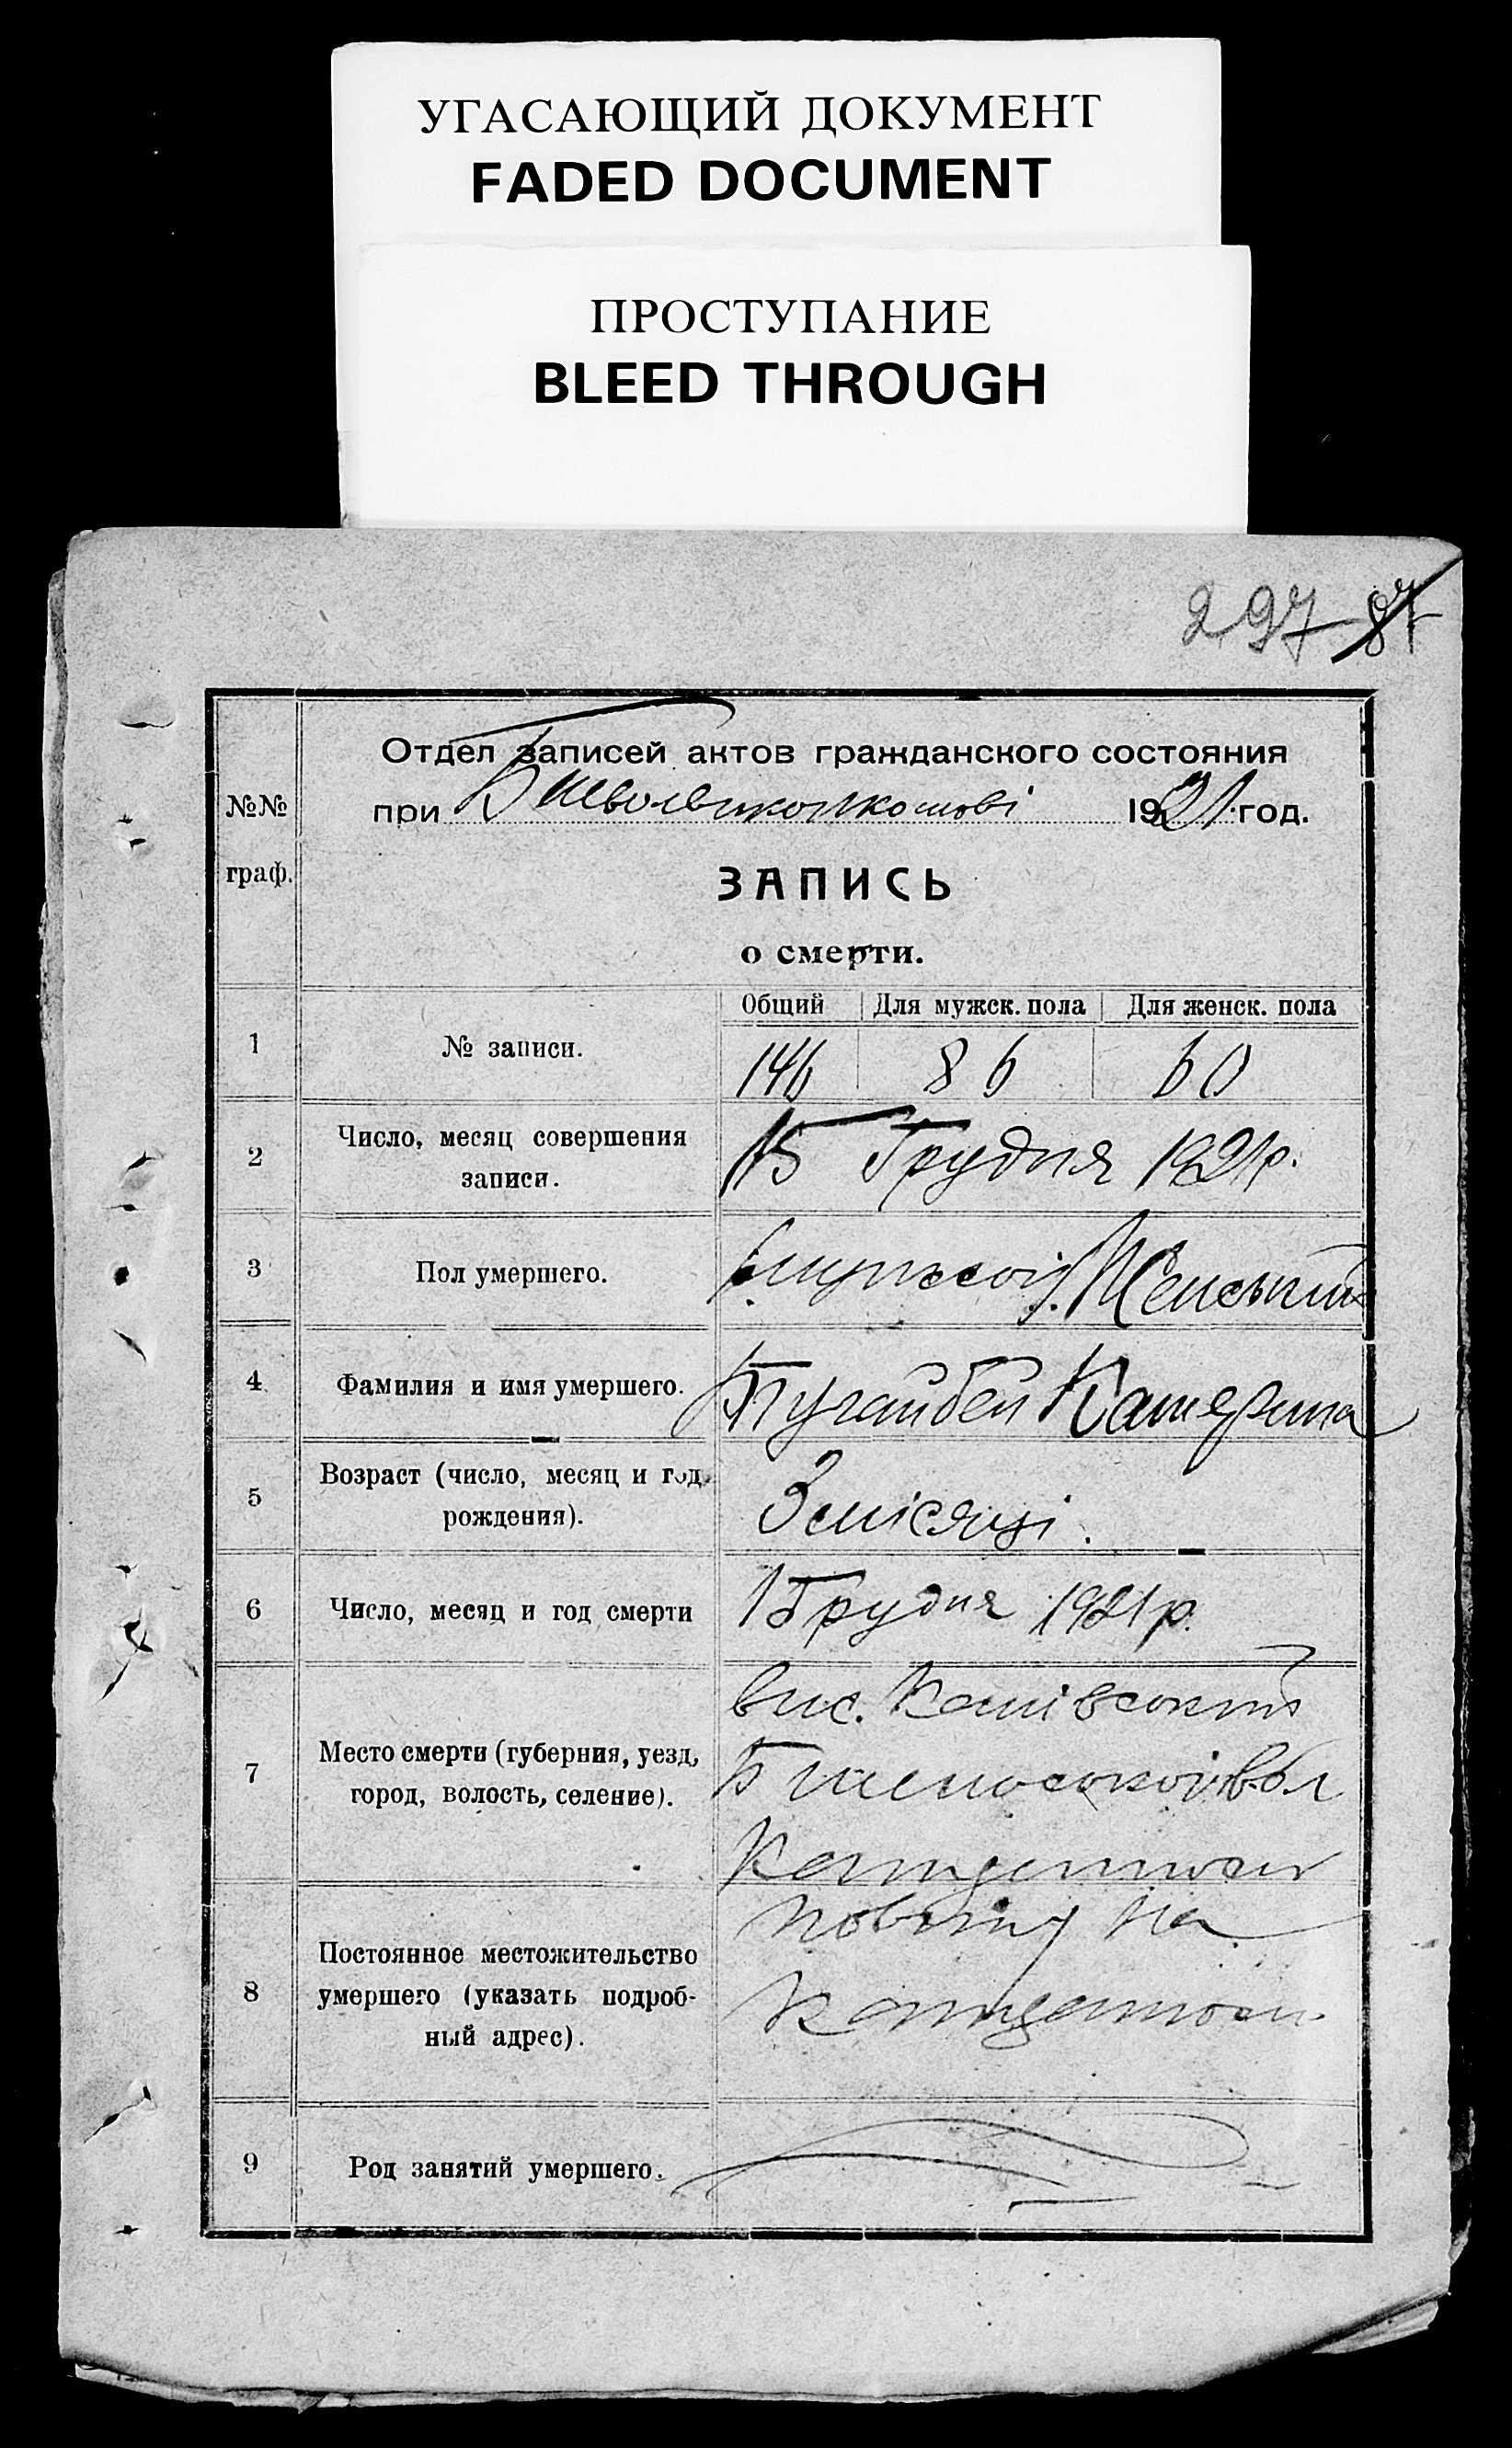 УГАСАЮЩИЙ ДОКУМЕНТ
FADED DOCUMENT
ПРОСТУПАНИЕ
BLEED THROUGH
297 87
№№ граф.
Отдел записей актов гражданского состояния
при 1921 год.
ЗАПИСЬ
о смерти.
Общий Для мужск. пола Для женск. пола
1 № записи. 146 86 60
2 Число, месяц совершения записи. 15 Грудня 1921р.
3 Пол умершего. Женський
4 Фамилия и имя умершего. Катерина
5 Возраст (число, месяц и год рождения). 3 місяці.
6 Число, месяц и год смерти 1 Грудня 1921р.
7 Место смерти (губерния, уезд, город, волость, селение). вис.
вол
8 Постоянное местожительство умершего (указать подробный адрес). повіту на
9 Род занятий умершего.